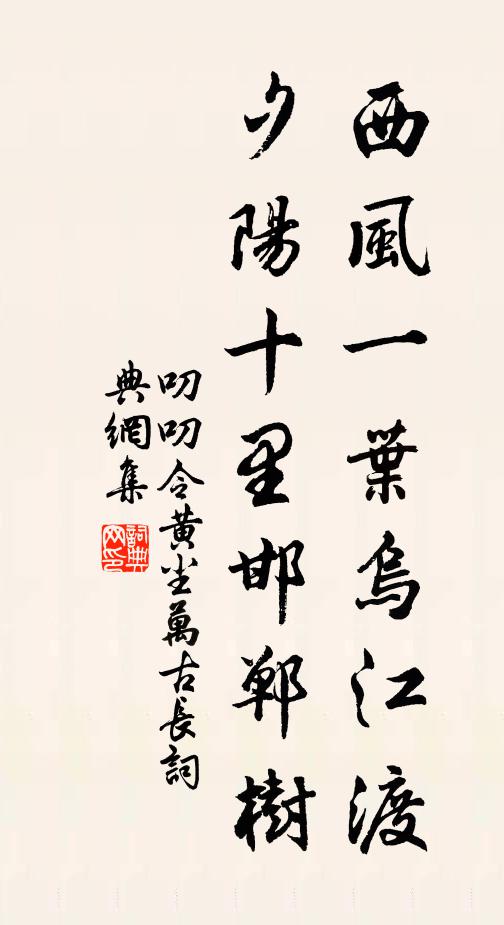 西風一葉烏江渡
夕陽十里邯鄲樹
叨叨令黃尘萬古長詞
典網集
詞典
网印